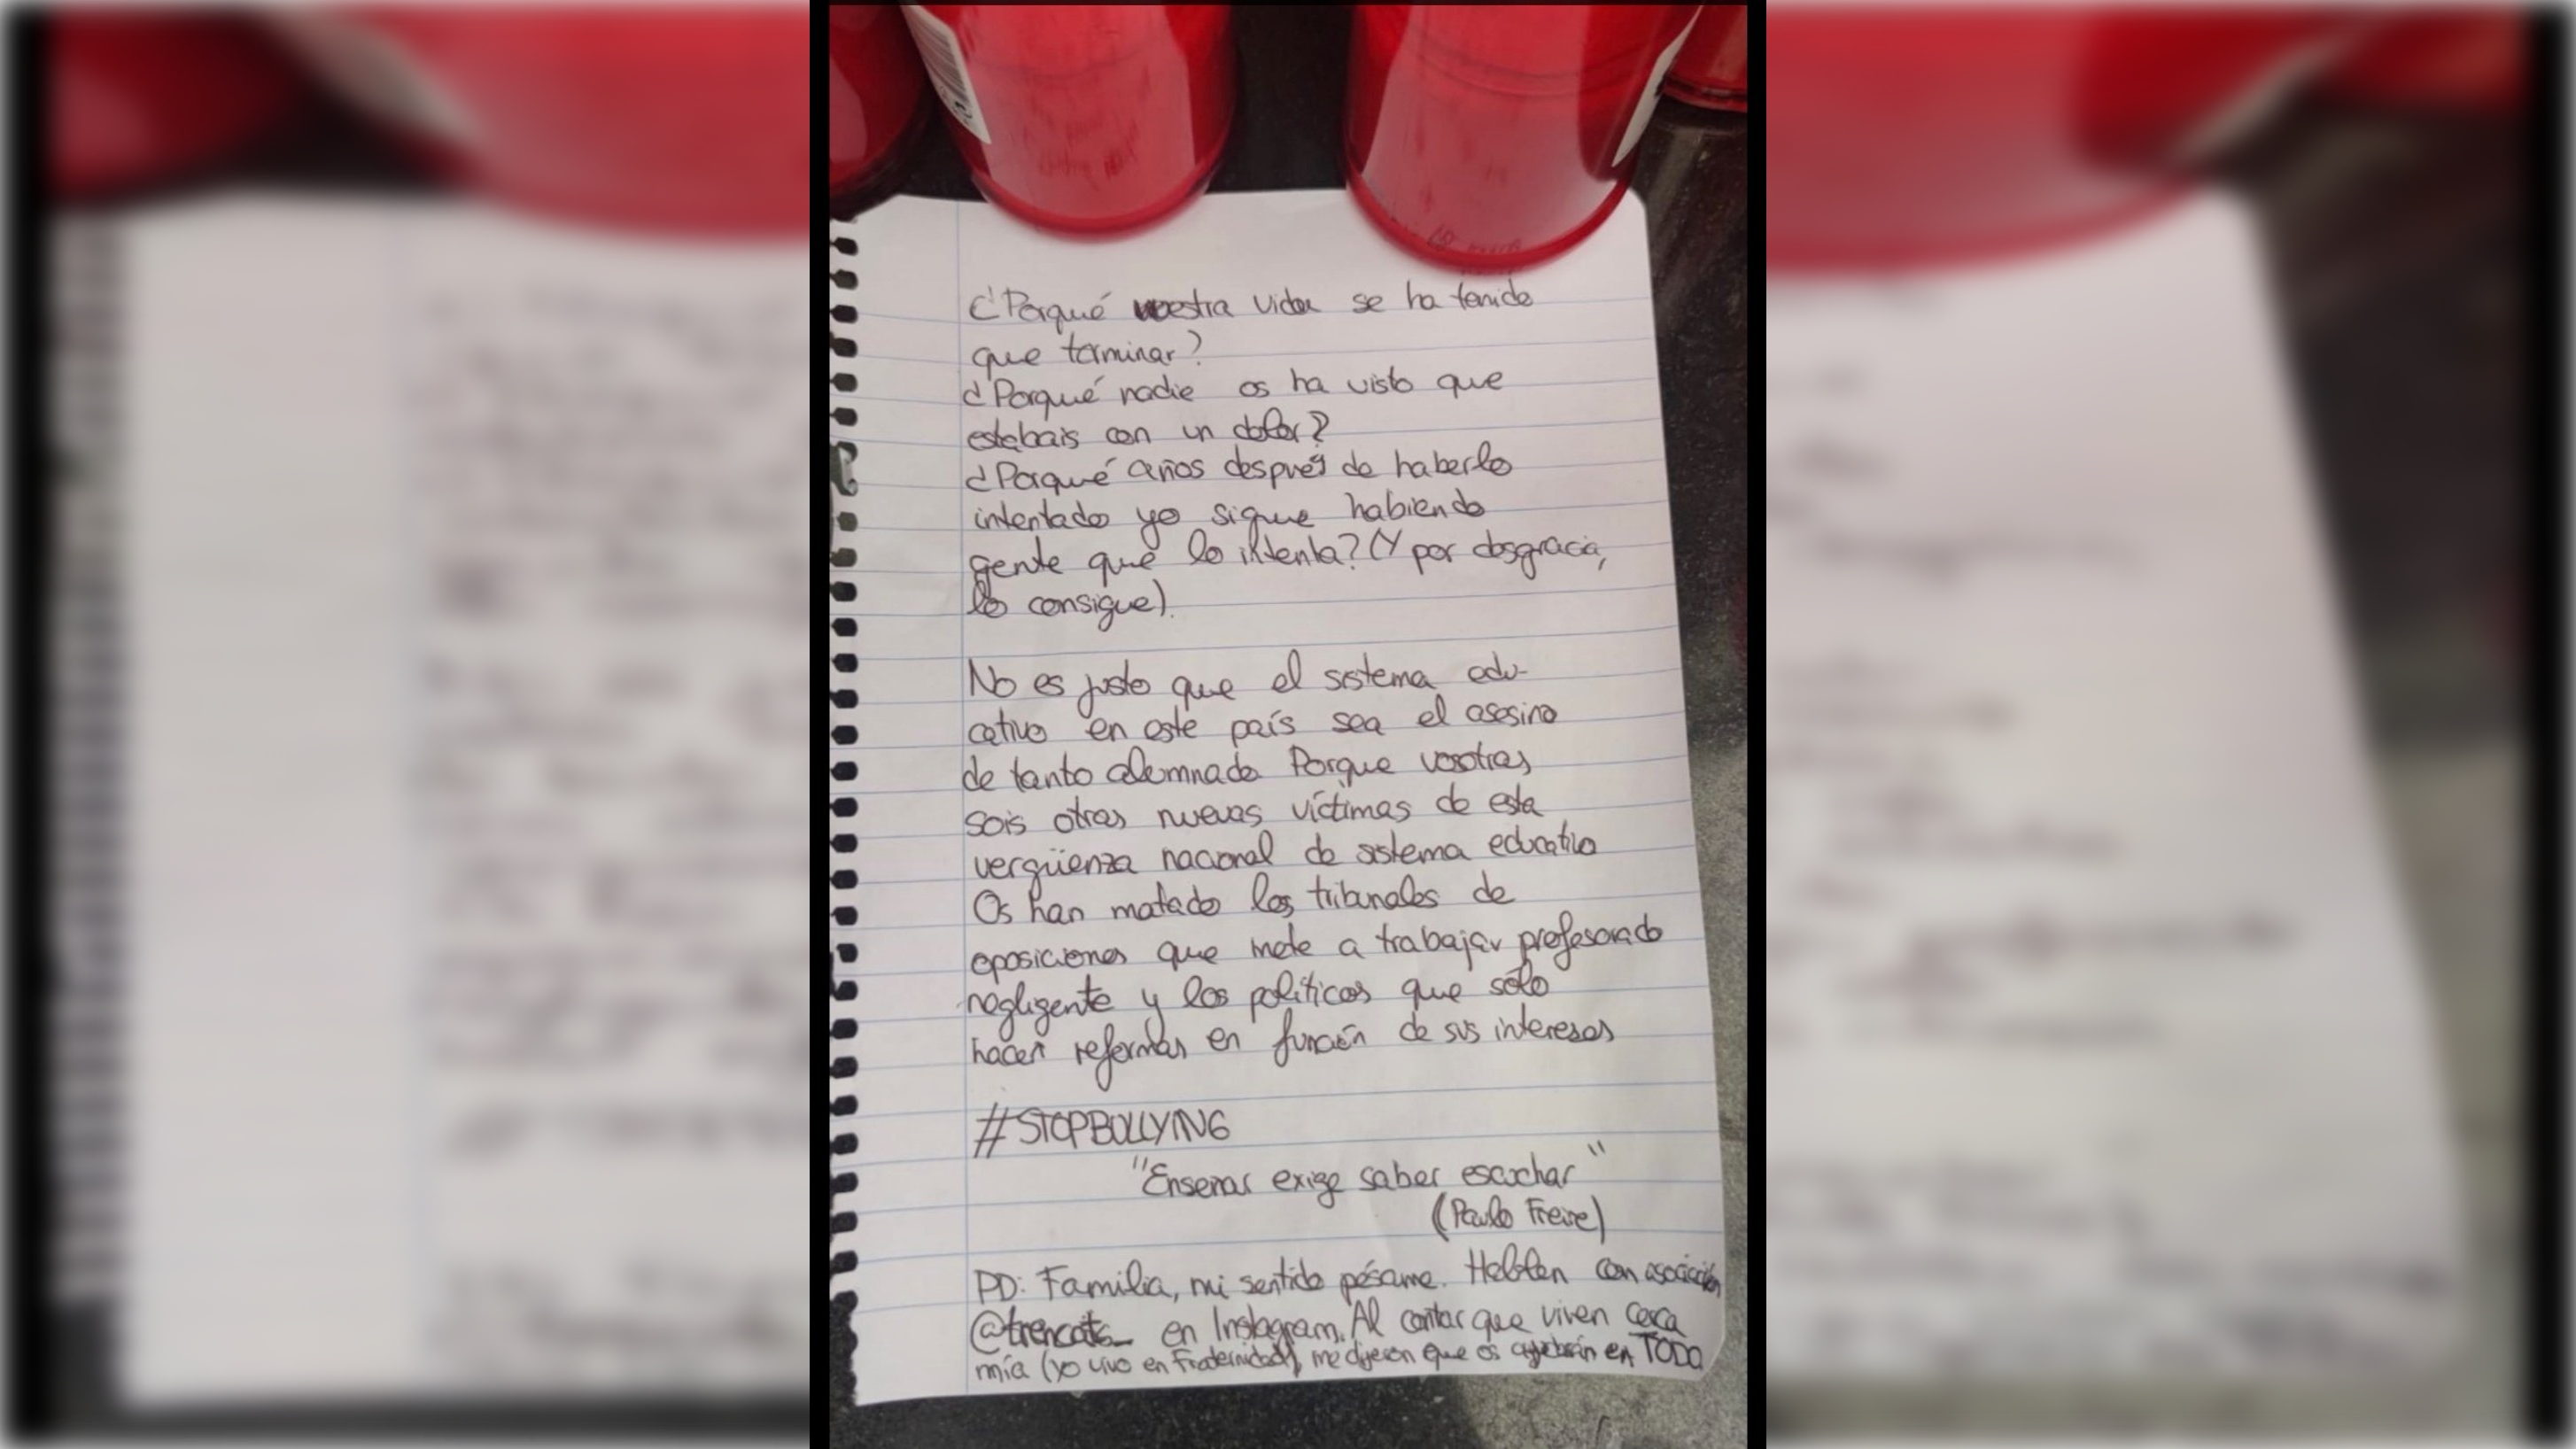 ¿Porqué vuestra vida se ha tenido
que terminar?
¿Porqué nadie os ha visto que
estabais con un dolor?
¿Porqué años después de haberlo
intentado yo sigue habiendo
gente que lo intenta? (Y por desgracia,
lo consigue).
No es justo que el sistema edu-
cativo en este país sea el asesino
de tanto alumnado Porque vosotras
sois otras nuevas víctimas de esta
vergüenza nacional de sistema educativo
Os han matado los tribunales de
oposiciones que mete a trabajar profesorado
negligente y los políticos que sólo
hacen reformas en función de sus intereses
#STOPBULLYING
"Enseñar exige saber escuchar"
(Paulo Freire)
PD: Familia, mi sentido pésame. Hablen con asociación
@trencats_ en Instagram. Al contar que viven cerca
mía (yo vivo en Fraternidad), me dijeron que os ayudarán en TODO